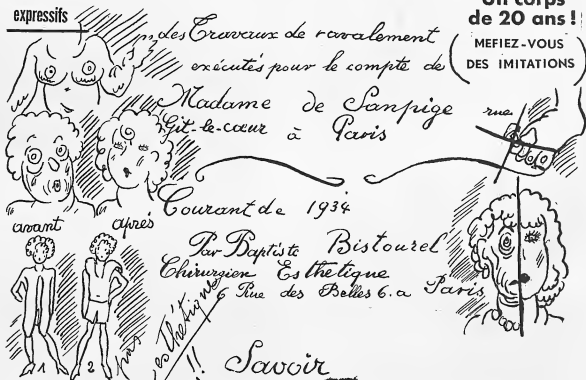 expressifs
Un corps
de 20 ans !
MEFIEZ-VOUS
DES IMITATIONS
des Travaux de ravalement
exécutés pour le compte de
Madame de Sanpige rue
Gît-le-cœur à Paris
Courant de 1934
avant après
Par Baptiste Bistourel
Chirurgien Esthétique
6 Rue des Belles 6. a Paris
1 2
pas
esthétique
!!
Savoir